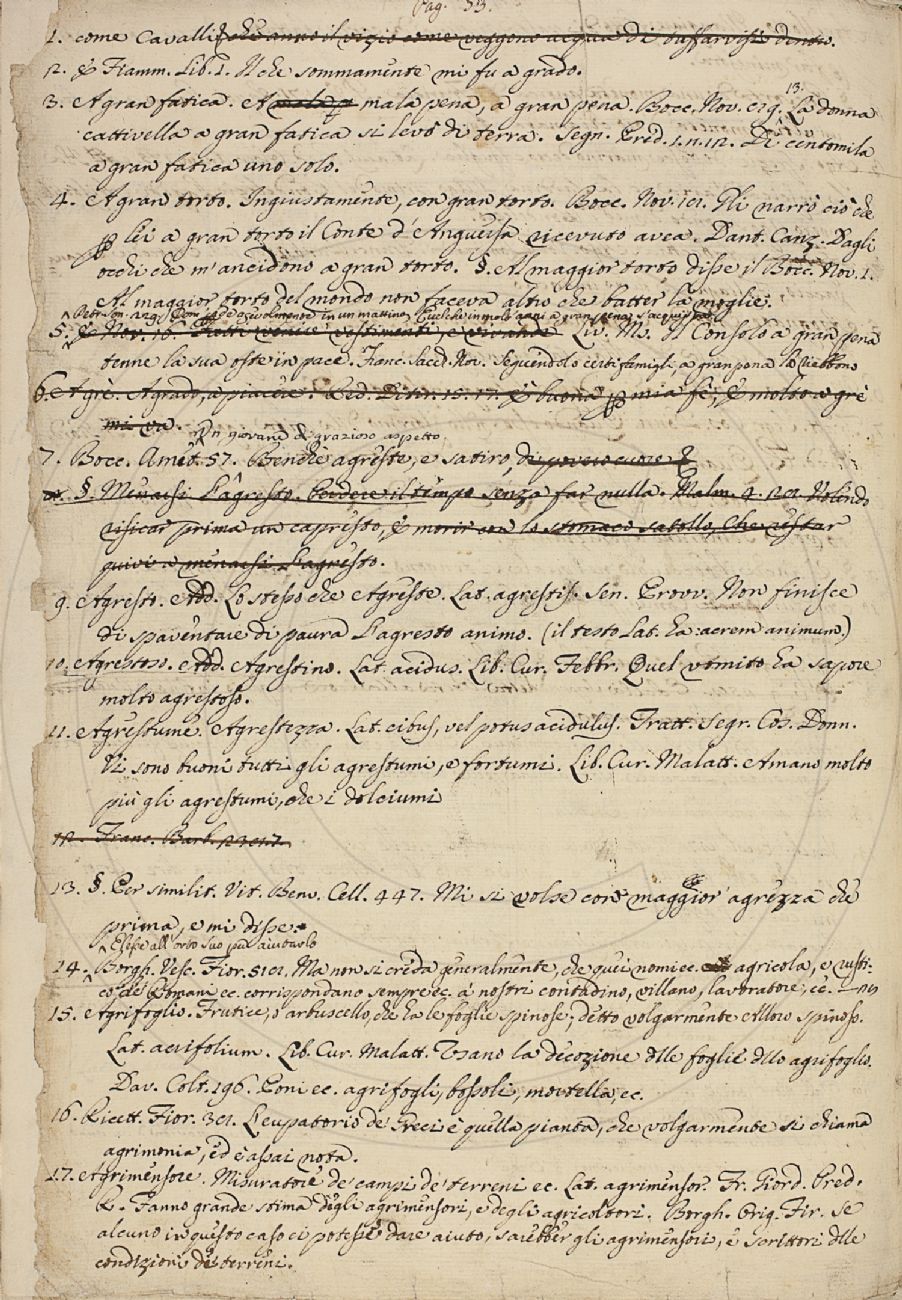 Pag. 33.
1. come Cavalli che anno il vizio come veggono acqua di tuffarvisi dentro.
2. E Fiamm. Lib. 1. Il che sommamente mi fu a grado.
3. A gran fatica. A mala p mala pena, a gran pena. Bocc. Nov. 13. La donna
cattivella a gran fatica si levò di terra. Segn. Pred. 1. n. 12. Di centomila
a gran fatica uno solo.
4. A gran torto. Ingiustamente, con gran torto. Bocc. Nov. Gli narrò ciò che
p lei a gran torto il Conte d'Anguersa ricevuto avea. Dant. Canz. Dagli
occhi che m'ancidono a gran torto. §. Al maggior torto disse il Bocc. Nov. 1.
Al maggior torto del mondo non faceva altro che batter la moglie.
Petr. Son. agevolmente in un mattino, Quel che in molti anni a gran pena s'acquista
5. E Nov. 16. Fatti venire vestimenti, e vivande Liv. Ms. Il Consolo a gran pena
tenne la sua oste in pace. Franc. Sacch. Nov. Seguendolo certi famigli, a gran pena l'ebbono
6. A grè. A grado, a piacere. Red. Ditir. 15. 17. E buona p mia fe, E molto a grè
mi va.
Un giovane di grazioso aspetto
7. Bocc. Amet. 57. Benchè agreste, e satiro, di povero cuore
§. Menarsi l'agresto. Perdere il tempo senza far nulla. Malm. Volendo
risicar prima un capresto, E morir con lo stomaco satollo, Che restar
quivi a menarsi l'agresto.
9. Agresto. Add. Lo stesso che Agreste. Lat. agrestis. Sen. Provv. Non finisce
di spaventare di paura l'agresto animo. (il testo Lat. ha: acrem animum.)
10. Agrestoso. Add. Agrestino. Lat. acidus. Lib. Cur. Febbr. Quel vomito ha sapore
molto agrestoso.
11. Agrestume. Agrestezza. Lat. cibus, vel potus acidulus. Tratt. Segr. Cos. Donn.
Vi sono buoni tutti gli agrestumi, e fortumi. Lib. Cur. Malatt. Amano molto
più gli agrestumi, che i dolciumi
12. Franc. Barb.
13. §. Per similit. Vit. Benv. Cell. 447. Mi si volse con maggior agrezza che
prima, e mi disse.
E spse all'orto suo per aiutarlo
14. Borgh. Vesc. Fior. Ma non si creda generalmente, che quei nomi ec. agricola, e rusti-
co, de' Romani ec. corrispondano sempre ec. a' nostri contadino, villano, lavoratore, ec.
15. Agrifoglio. Frutice, o arbuscello, che ha le foglie spinose; detto volgarmente Alloro spinoso.
Lat. acrifolium. Lib. Cur. Malatt. Usano la decozione delle foglie dello agrifoglio.
Dav. Colt. 196. Poni ec. agrifogli, bossoli, mortella, ec.
16. Ricett. Fior. L'eupatorio de' Greci è quella pianta, che volgarmente si chiama
agrimonia, ed è assai nota.
17. Agrimensore. Misuratore de' campi de' terreni ec. Lat. agrimensor. Fr. Giord. Pred.
R. Fanno grande stima degli agrimensori, e degli agricoltori. Borgh. Orig. Fir. Se
alcuno in questo caso ci potesse dare aiuto, sarebber gli agrimensori, e scrittori delle
condizioni de' terreni.